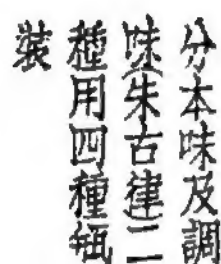 分本味及調
味(朱古律)二
種用四種瓶
裝